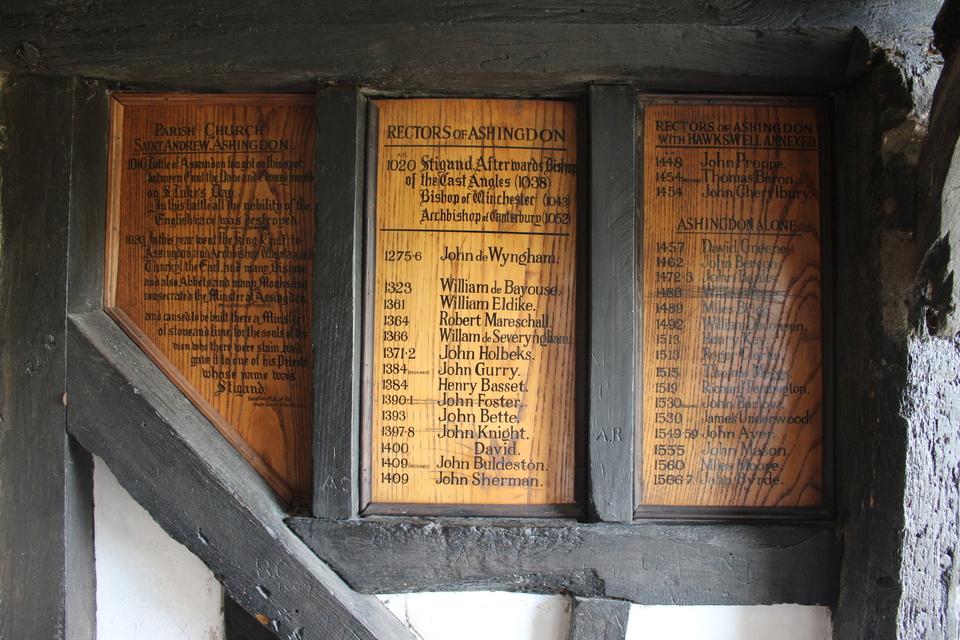 PARISH CHURCH
SAINT ANDREW, ASHINGDON.
1016 Battle of Assandon fought on this spot
between Cnut the Dane and Edmund Ironside
on S. Luke's Day.
In this battle all the nobility of the
English race was destroyed.
1020 In this year went the King Cnut to
Assingdon and Archbishop Wulfstan and
Thurkyl the Earl, and many Bishops
and also Abbots and many Monks and
consecrated the Minster at Assingdon.
and caused to be built there a Minster
of stone and lime, for the souls of the
men who there were slain, and
gave it to one of his Priests
whose name was
Stigand.
RECTORS OF ASHINGDON
1020 Stigand, Afterwards Bishop
of the East Angles (1038)
Bishop of Winchester (1043)
Archbishop of Canterbury (1052)
1275-6 John de Wyngham.
1323 William de Bayouse.
1361 William Eldike.
1364 Robert Mareschall.
1366 Willam de Severyngham.
1371-2 John Holbeks.
1384 (RESIGNED) John Gurry.
1384 Henry Basset.
1390-1 John Foster.
1393 John Bette.
1397-8 John Knight.
1400 David.
1409 (RESIGNED) John Buldeston.
1409 John Sherman.
RECTORS OF ASHINGDON
WITH HAWKSWELL ANNEXED.
1448 John Proppe.
1454 Thomas Baron.
1454 John Cherylbury.
ASHINGDON ALONE.
1457 David Greene.
1462 John
1472-3 John
1486
1489
1492 William
1513 Henry
1513 Roger Clerke.
1515 Thomas
1519 Richard
1530 John Barlow.
1530 James Underwood.
1549-59 John Aver.
1555 John Mason.
1560 Miles Moore.
1566-7 John Byrde.
A.R